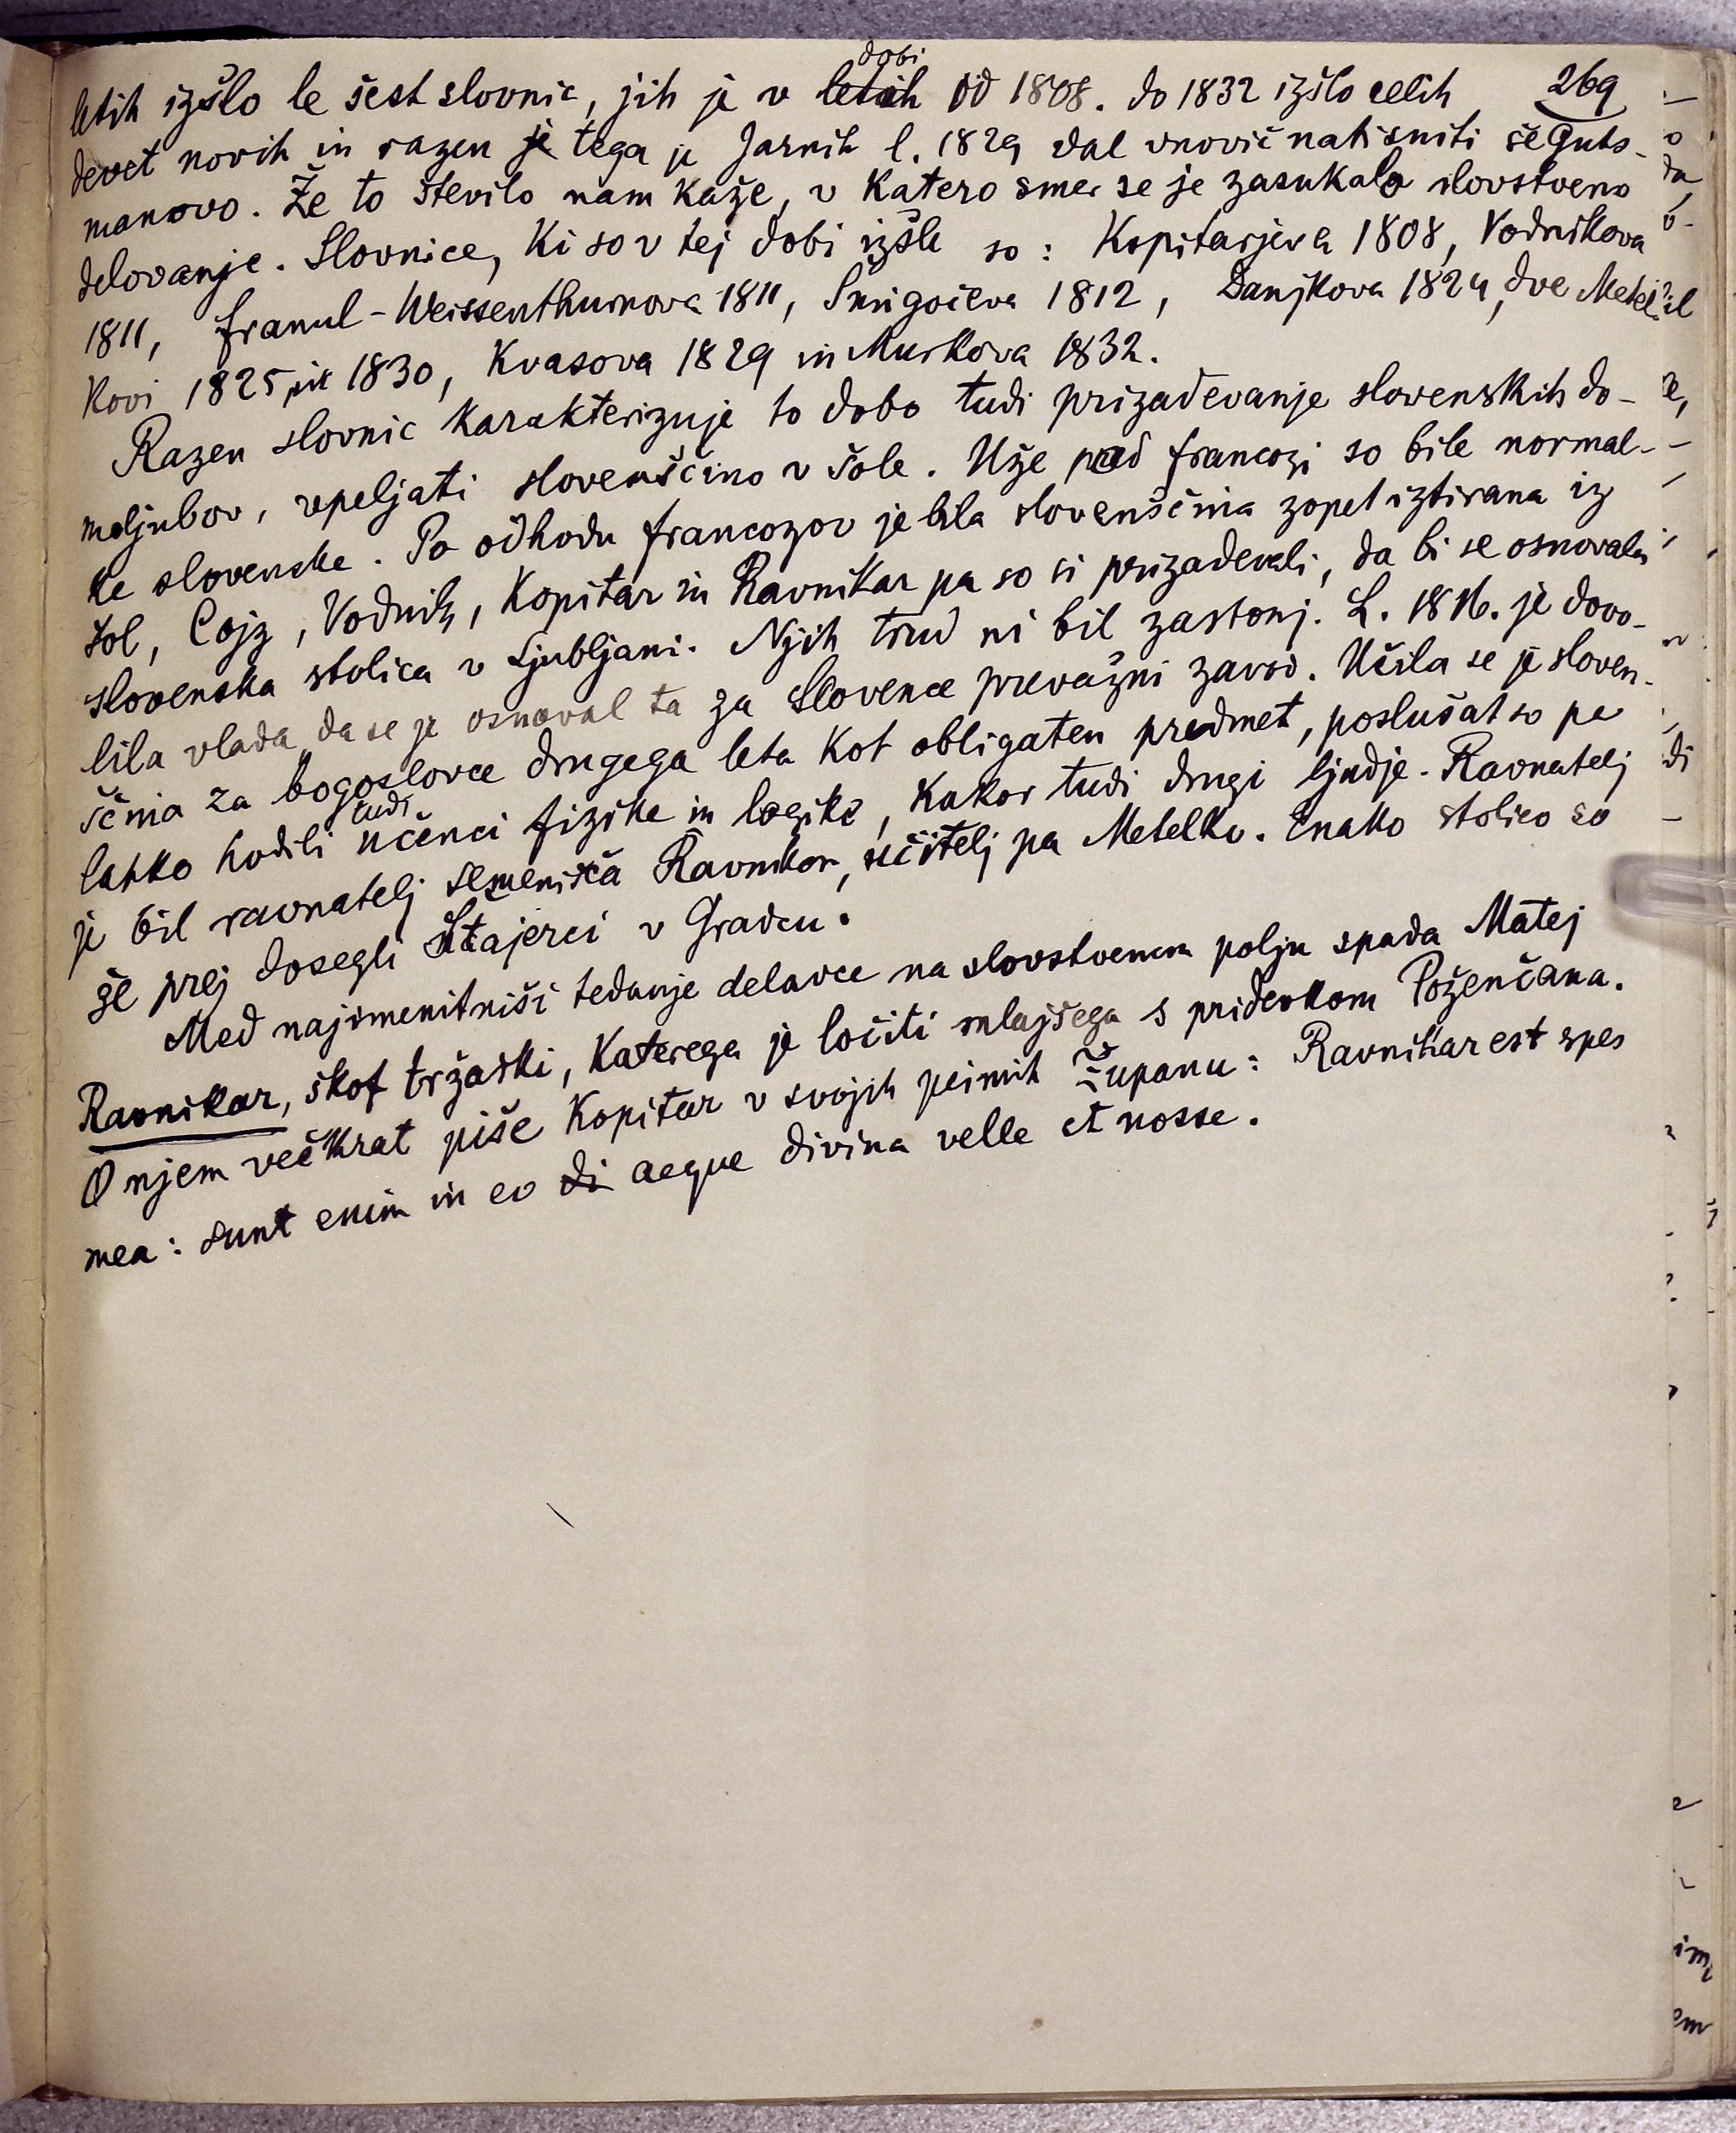 269
letih izšlo le šest slovnic, jih je v dobi od 1808. do 1832 izšlo celih
devet novih in razen tega je Jarnik l. 1829 dal vnovič natisniti še Guts-
manovo. Že to število nam kaže, v katero smer se je zasukalo slovstveno
delovanje. Slovnice, ki so v tej dobi izšle so: Kopitarjeva 1808, Vodnikova
1811, Franul-Weissenthurnova 1811, Šmigočeva 1812, Danjkova 1824, dve Metel-
kovi 1825 in 1830, Kvasova 1829 in Murkova 1832.
Razen slovnic karakterizuje to dobo tudi prizadevanje slovenskih do-
moljubov, vpeljati slovenščino v šole. Uže pred francozi so bile normal-
ke slovenske. Po odhodu francozov je bila slovenščina zopet iztirana iz
šol, Cojz, Vodnik, Kopitar in Ravnikar pa so si prizadevali, da bi se osnovala
slovenska stolica v Ljubljani. Njih trud ni bil zastonj. L. 1816. je dovo-
lila vlada, da se je osnoval ta za Slovence prevažni zavod. Učila se je sloven-
ščina za bogoslovce drugega leta kot obligaten predmet, poslušat so pa
lahko hodili tudi učenci fizike in logike, kakor tudi drugi ljudje. Ravnatelj
je bil ravnatelj semenišča Ravnikar, učitelj pa Metelko. Enako stolico so
že prej dosegli Štajerci v Gradcu.
Med najimenitniši tedanje delavce na slovstvenem polju spada Matej
Ravnikar, škof tržaški, katerega je ločiti mlajšega s pridevkom Poženčana.
O njem večkrat piše Kopitar v svojih pismih Županu: Ravnikar est spes
mea: sunt enim in eo aeque divina velle et nosse.